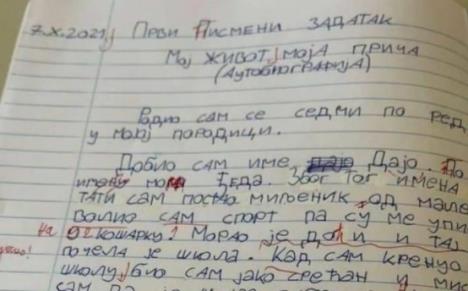 7.X.2021. Први писмени задатак
Мој живот, моја прича
(Аутобиографија)
Родио сам се седми по ред
у мојој породици.
Добио сам име Дајо. По
имену мога ђеда. Због тог имена
тати сам постао миљеник. Од мале
волио сам спорт па су ме упи
на кошарку. Морао је доћи и тај
почела је школа. Кад сам кренуо
школу, био сам јако срећан у
сам